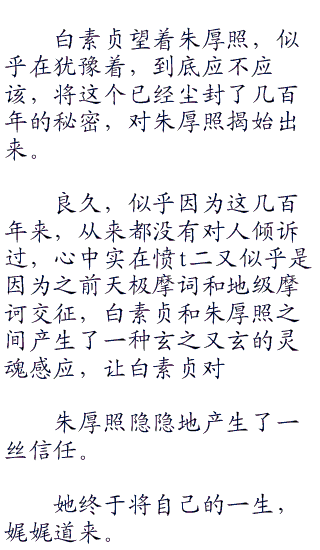 白素贞望着朱厚照，似
乎在犹豫着，到底应不应
该，将这个已经尘封了几百
年的秘密，对朱厚照揭始出
来。
良久，似乎因为这几百
年来，从来都没有对人倾诉
过，心中实在愤t二又似乎是
因为之前天极摩词和地级摩
诃交征，白素贞和朱厚照之
间产生了一种玄之又玄的灵
魂感应，让白素贞对
朱厚照隐隐地产生了一
丝信任。
她终于将自己的一生，
娓娓道来。